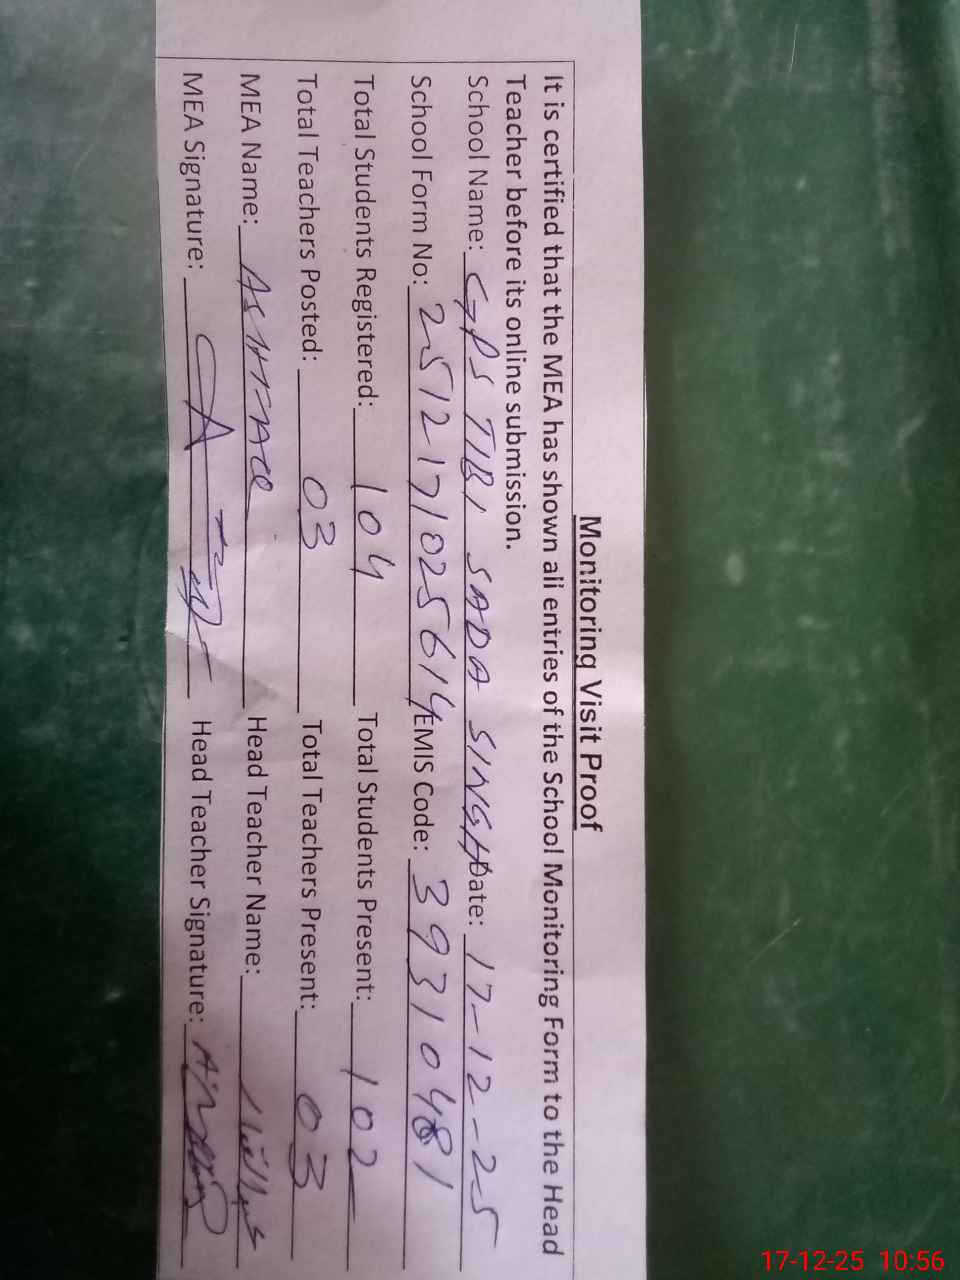 Monitoring Visit Proof
It is certified that the MEA has shown all entries of the School Monitoring Form to the Head
Teacher before its online submission.
School Name: GPS TIBI SADA SINGH Date: 17-12-25
School Form No: 2512171025614 EMIS Code: 39310481
Total Students Registered: 104 Total Students Present: 102
Total Teachers Posted: 03 Total Teachers Present: 03
MEA Name: Head Teacher Name:
MEA Signature: Head Teacher Signature:
17-12-25 10:56